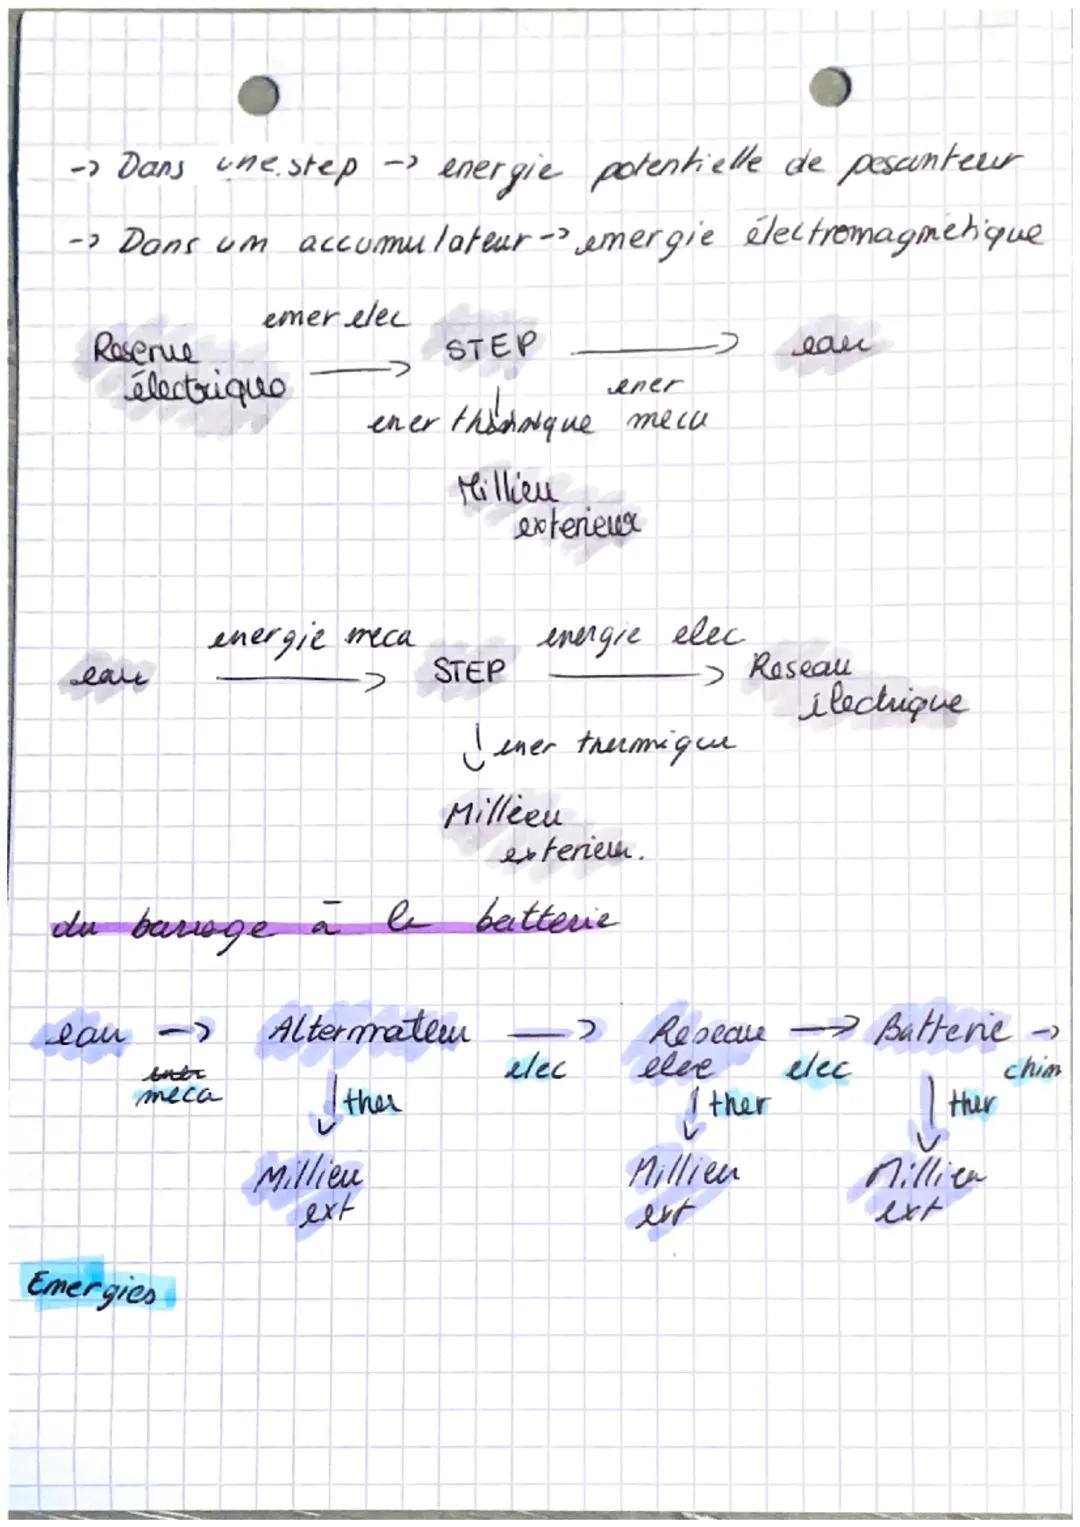 -> Dans une step -> energie potentielle de pesanteur
-> Dans um accumulateur -> emergie électromagnétique
emer elec
Reserue STEP -> eau
électrique -> ener
ener thermique meca
Millieu
exterieur
energie meca energie elec
eau -> STEP -> Reseau
électrique
↓ ener thermique
Millieu
exterieur.
du barrage à la batterie
eau -> Altermateur -> Reseau -> Batterie ->
ener elec elec elec chim
meca ↓ ther ↓ ther ↓ ther
Millieu Millieu Millieu
ext ext ext
Emergies